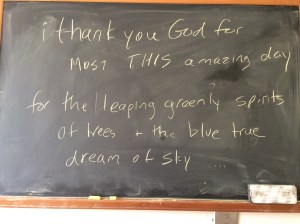 i thank you God for
MOST THIS amazing day
for the leaping greenly spirits
of trees + the blue true
dream of sky ....